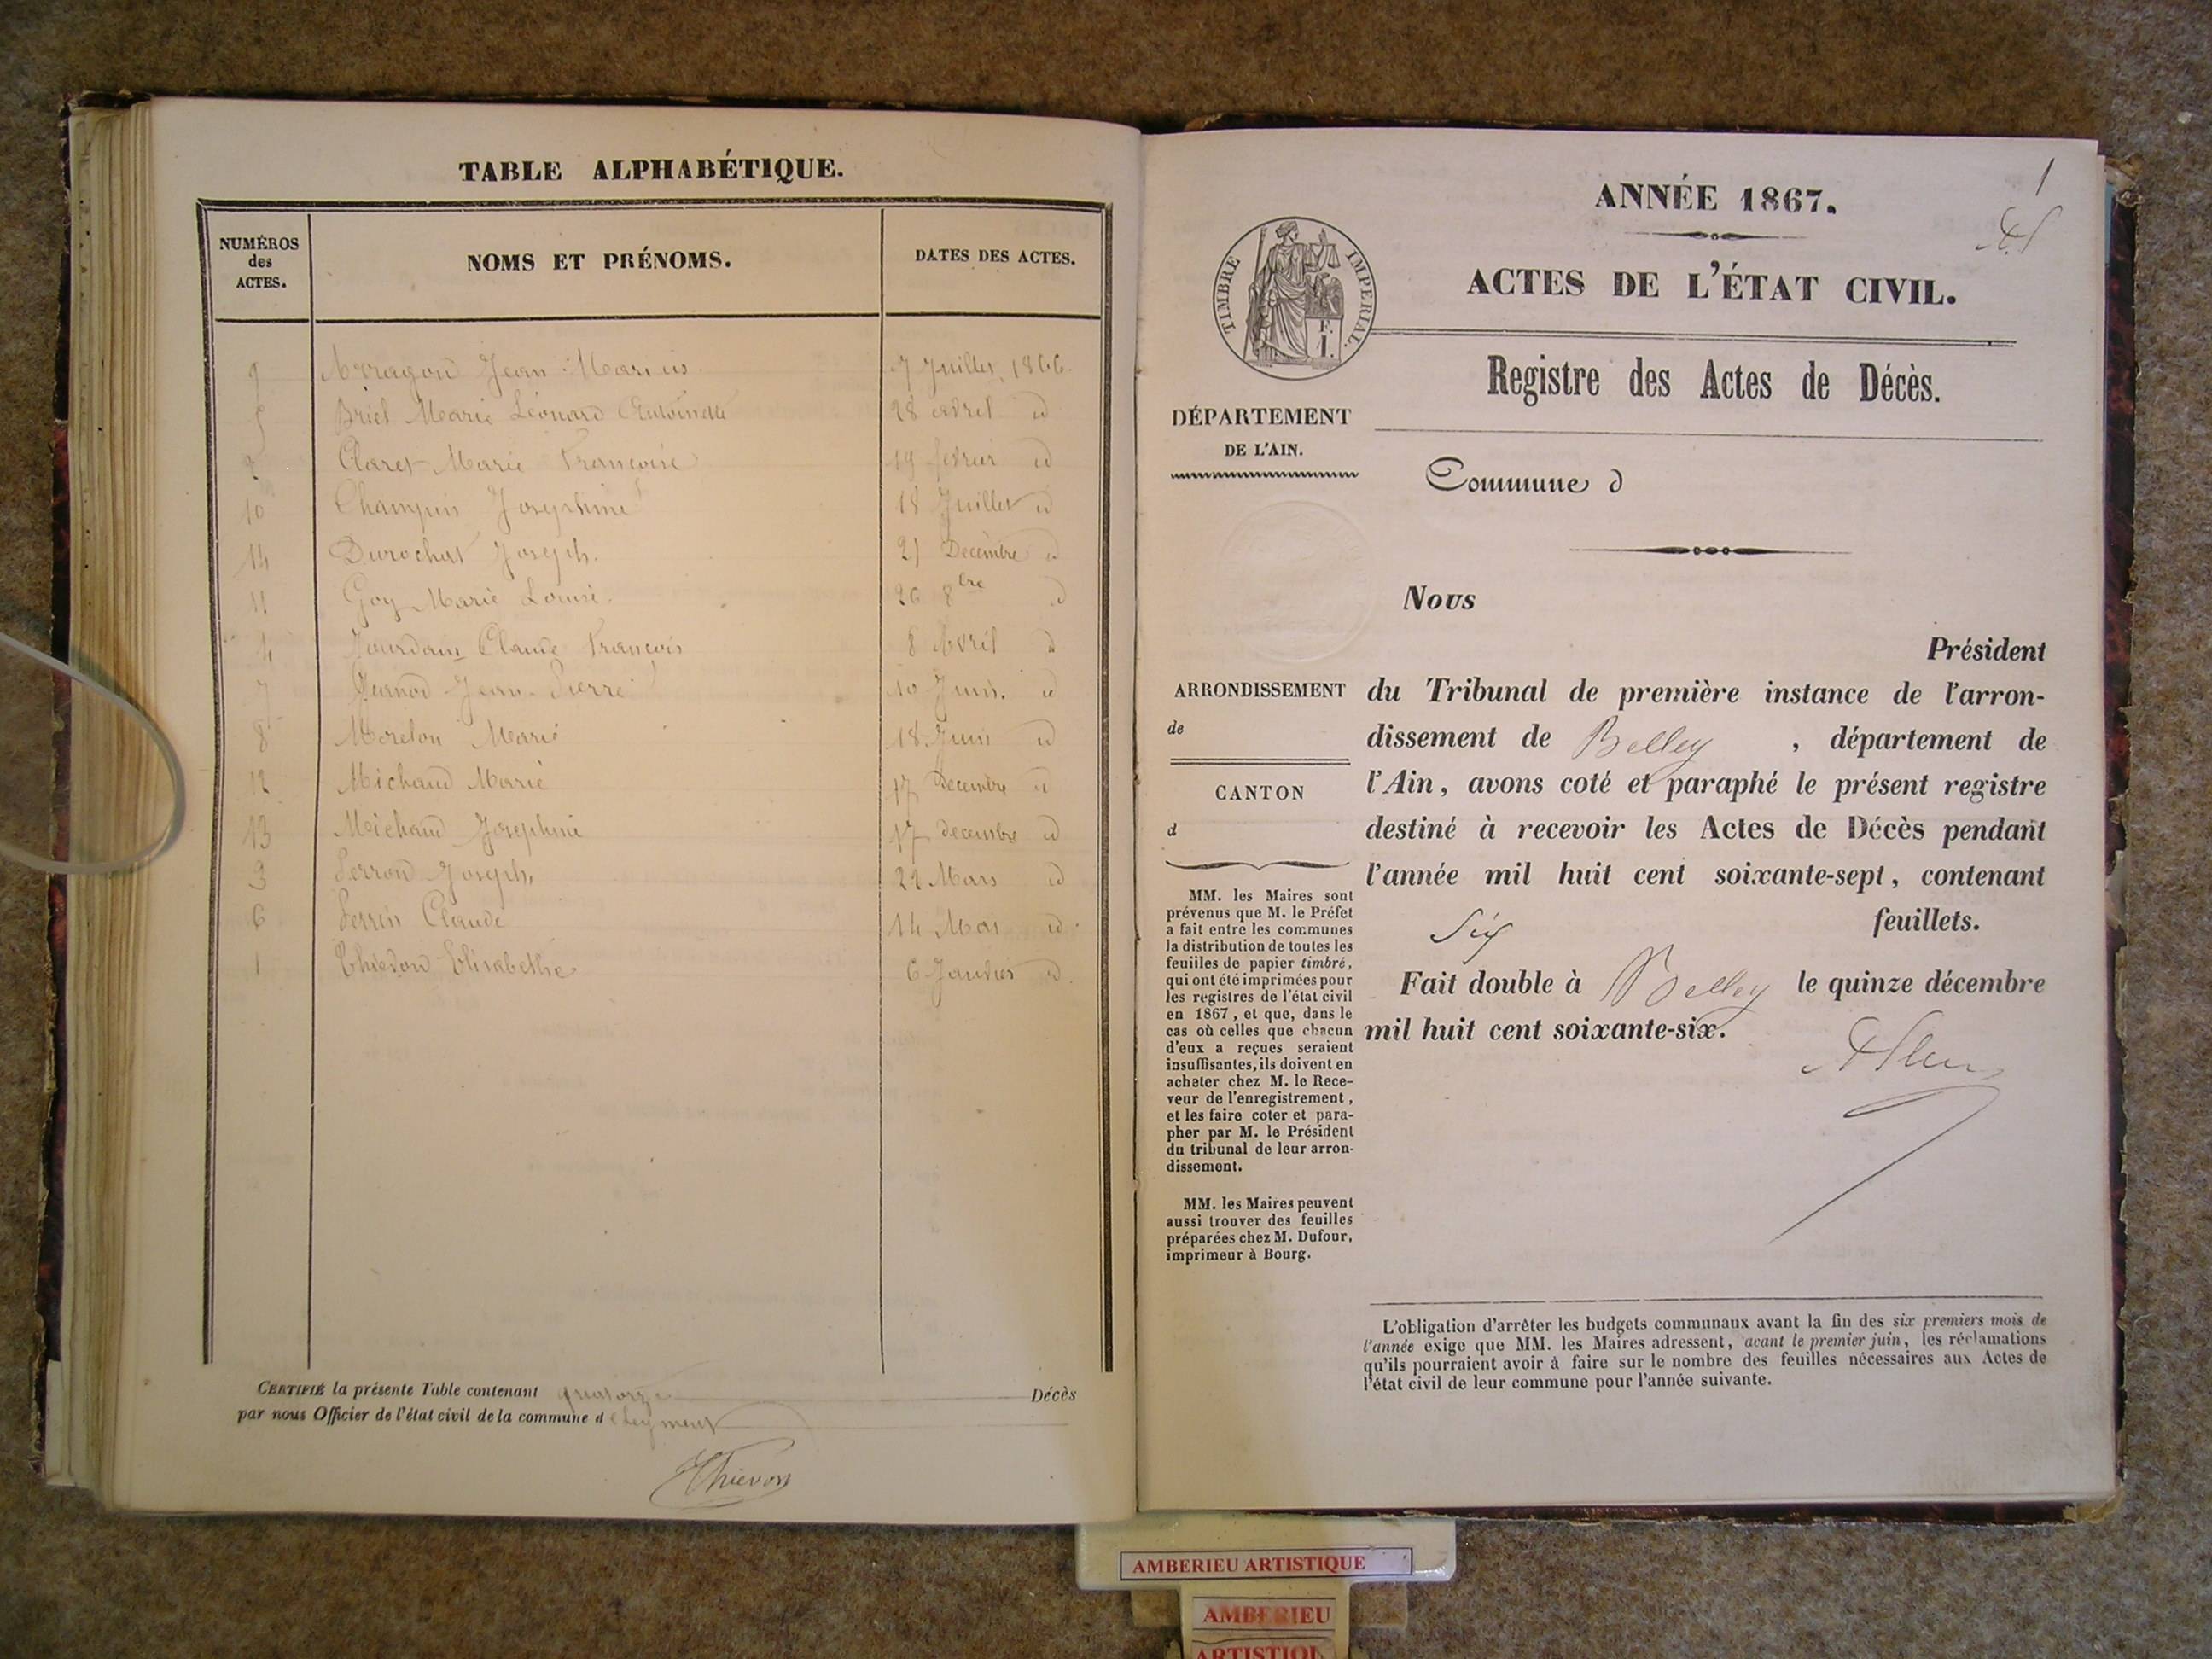 TABLE ALPHABÉTIQUE.
NUMÉROS
des
ACTES.
NOMS ET PRÉNOMS.
DATES DES ACTES.
9 Jean-Marius 7 Juillet 1866.
5 Briel Marie Léonard Antoinette 28 avril id
2 Claret Marie Françoise 19 février id
10 Champin Josephine 18 Juillet id
14 Durochat Joseph. 21 Décembre id
11 Goy Marie Louise. 26 8bre id
4 Jourdain Claude François 8 Avril id
7 Jean-Pierre 10 Juin. id
8 Morelon Marie 18 Juin id
12 Michaud Marie 17 Décembre id
13 Michaud Josephine 17 décembre id
3 Perron Joseph, 22 Mars id
6 Perrin Claude 14 Mai id
1 Thievon Elisabethe 6 Janvier id
CERTIFIÉ la présente Table contenant quatorze Décès
par nous Officier de l'état civil de la commune de Cleyment
Thievon
1
ANNÉE 1867.
ACTES DE L'ÉTAT CIVIL.
TIMBRE IMPÉRIAL.
F.
I.
Registre des Actes de Décès.
DÉPARTEMENT
DE L'AIN.
Commune d
Nous
Président
ARRONDISSEMENT
de
CANTON
d
du Tribunal de première instance de l'arron-
dissement de Belley , département de
l'Ain, avons coté et paraphé le présent registre
destiné à recevoir les Actes de Décès pendant
l'année mil huit cent soixante-sept, contenant
Six feuillets.
Fait double à Belley le quinze décembre
mil huit cent soixante-six.
MM. les Maires sont
prévenus que M. le Préfet
a fait entre les communes
la distribution de toutes les
feuilles de papier timbré,
qui ont été imprimées pour
les registres de l'état civil
en 1867, et que, dans le
cas où celles que chacun
d'eux a reçues seraient
insuffisantes, ils doivent en
acheter chez M. le Rece-
veur de l'enregistrement,
et les faire coter et para-
pher par M. le Président
du tribunal de leur arron-
dissement.
MM. les Maires peuvent
aussi trouver des feuilles
préparées chez M. Dufour,
imprimeur à Bourg.
L'obligation d'arrêter les budgets communaux avant la fin des six premiers mois de
l'année exige que MM. les Maires adressent, avant le premier juin, les réclamations
qu'ils pourraient avoir à faire sur le nombre des feuilles nécessaires aux Actes de
l'état civil de leur commune pour l'année suivante.
AMBERIEU ARTISTIQUE
AMBERIEU
ARTISTIQU